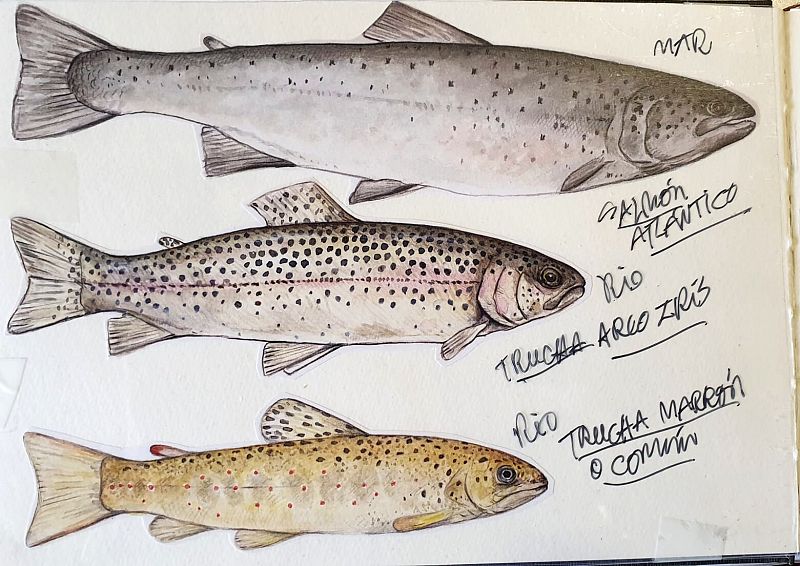 MAR
SALMÓN
ATLÁNTICO
RIO
TRUCHA ARCO IRIS
RIO
TRUCHA MARRÓN
O COMÚN